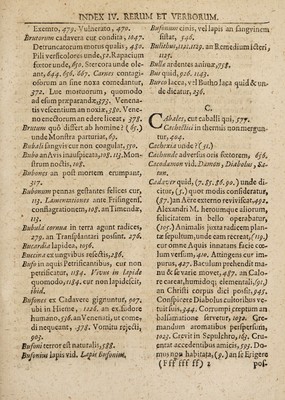 INDEX IV. RERUM ET VERBORUM.
Exemto, 479. Vulnerato, 470.
Brutorum cadavera cur condita, 1047.
Detruncatorum motus qualis, 450.
Pili versicolores unde, 52. Rapacium
fœtor unde, 650. Stercora unde ole-
ant, 644. 656. 667. Carnes contagi-
osorum an sine noxa comedantur,
372. Lue mortuorum, quomodo
ad esum præparandæ, 373. Venena-
tis vescentium an noxiæ, 380. Vene-
no enectorum an esui mereant, 378.
Brutum quo differt ab homine? (65.)
unde Monstra parturiat, 62.
Bubali sanguis cur non coagulat, 350.
Bubo an Avis inauspicata, 108. 113. Mon-
strum noctis, 108.
Bubones an post mortem erumpant,
317.
Bubonum pennas gestantes felices cur,
113. Lamentationes ante Frisingens.
conflagrationem, 108. an Timendæ,
113.
Bubula cornua in terra agont radices,
279. an Transplantari possint. 276.
Bucardia lapidea, 1096.
Buccina ex unguibus rejectis, 286.
Bufo in aquis Petrificantibus, cur non
petrificatur, 1184. Vivus in lapide
quomodo, 1184. cur non lapidescit,
ibid.
Bufones ex Cadavere gignuntur, 907.
ubi in Hieme, 1226. an ex Sudore
humano, 536. an Venenati, ut come-
di nequeant, 378. Vomitu rejecti,
903.
Bufoni terror est naturalis, 588.
Bufonius lapis vid. Lapis Bufonius.
Bufonum cinis, vel lapis an sanguinem
sistat, 546.
Bulithus, 1121. 1123. an Remedium icteri,
1125.
Bulla ardentes animæ, 738.
Bus quid, 926. 1143.
C.
Cabales, cur caballi qui, 577.
Catbellini in thermis non mergun-
tur, 404.
Cachexia unde? (51.)
Cachunde adversus oris fœtorem, 656.
Cacodæmon vid. Dæmon, Diabolus, Sa-
tan.
Cadaver quid, (7. 85. 86. 90.) unde di-
citur, (5.) quot modis consideratur,
Alexandri M. heronumque aliorum,
felicitatem in bello operabatur,
(105.) Animalis juxta radicem plan-
cur omne Aquis innatans facit cœ-
lum versum, 410. Attingens cur im-
purus, 427. Baculum prehendit ma-
nu & se varie movet, 487. an Calo-
rem caceat, humidoq; elementali, (51.)
an Christi corpus dici possit, 345.
Conspicere Diabolus cultoribus ve-
tuit suis, 344. Corrumpi creptum an
balsamatione servetur, 1032. Gre-
mundum aromatibus perspersum,
1025. Crevit in Sepulchro, 165. Cru-
entat occisoribus armis, 593. Do-
mus non habitata, (3.) an se Erigere
(Fff fff ff) 2
pos-